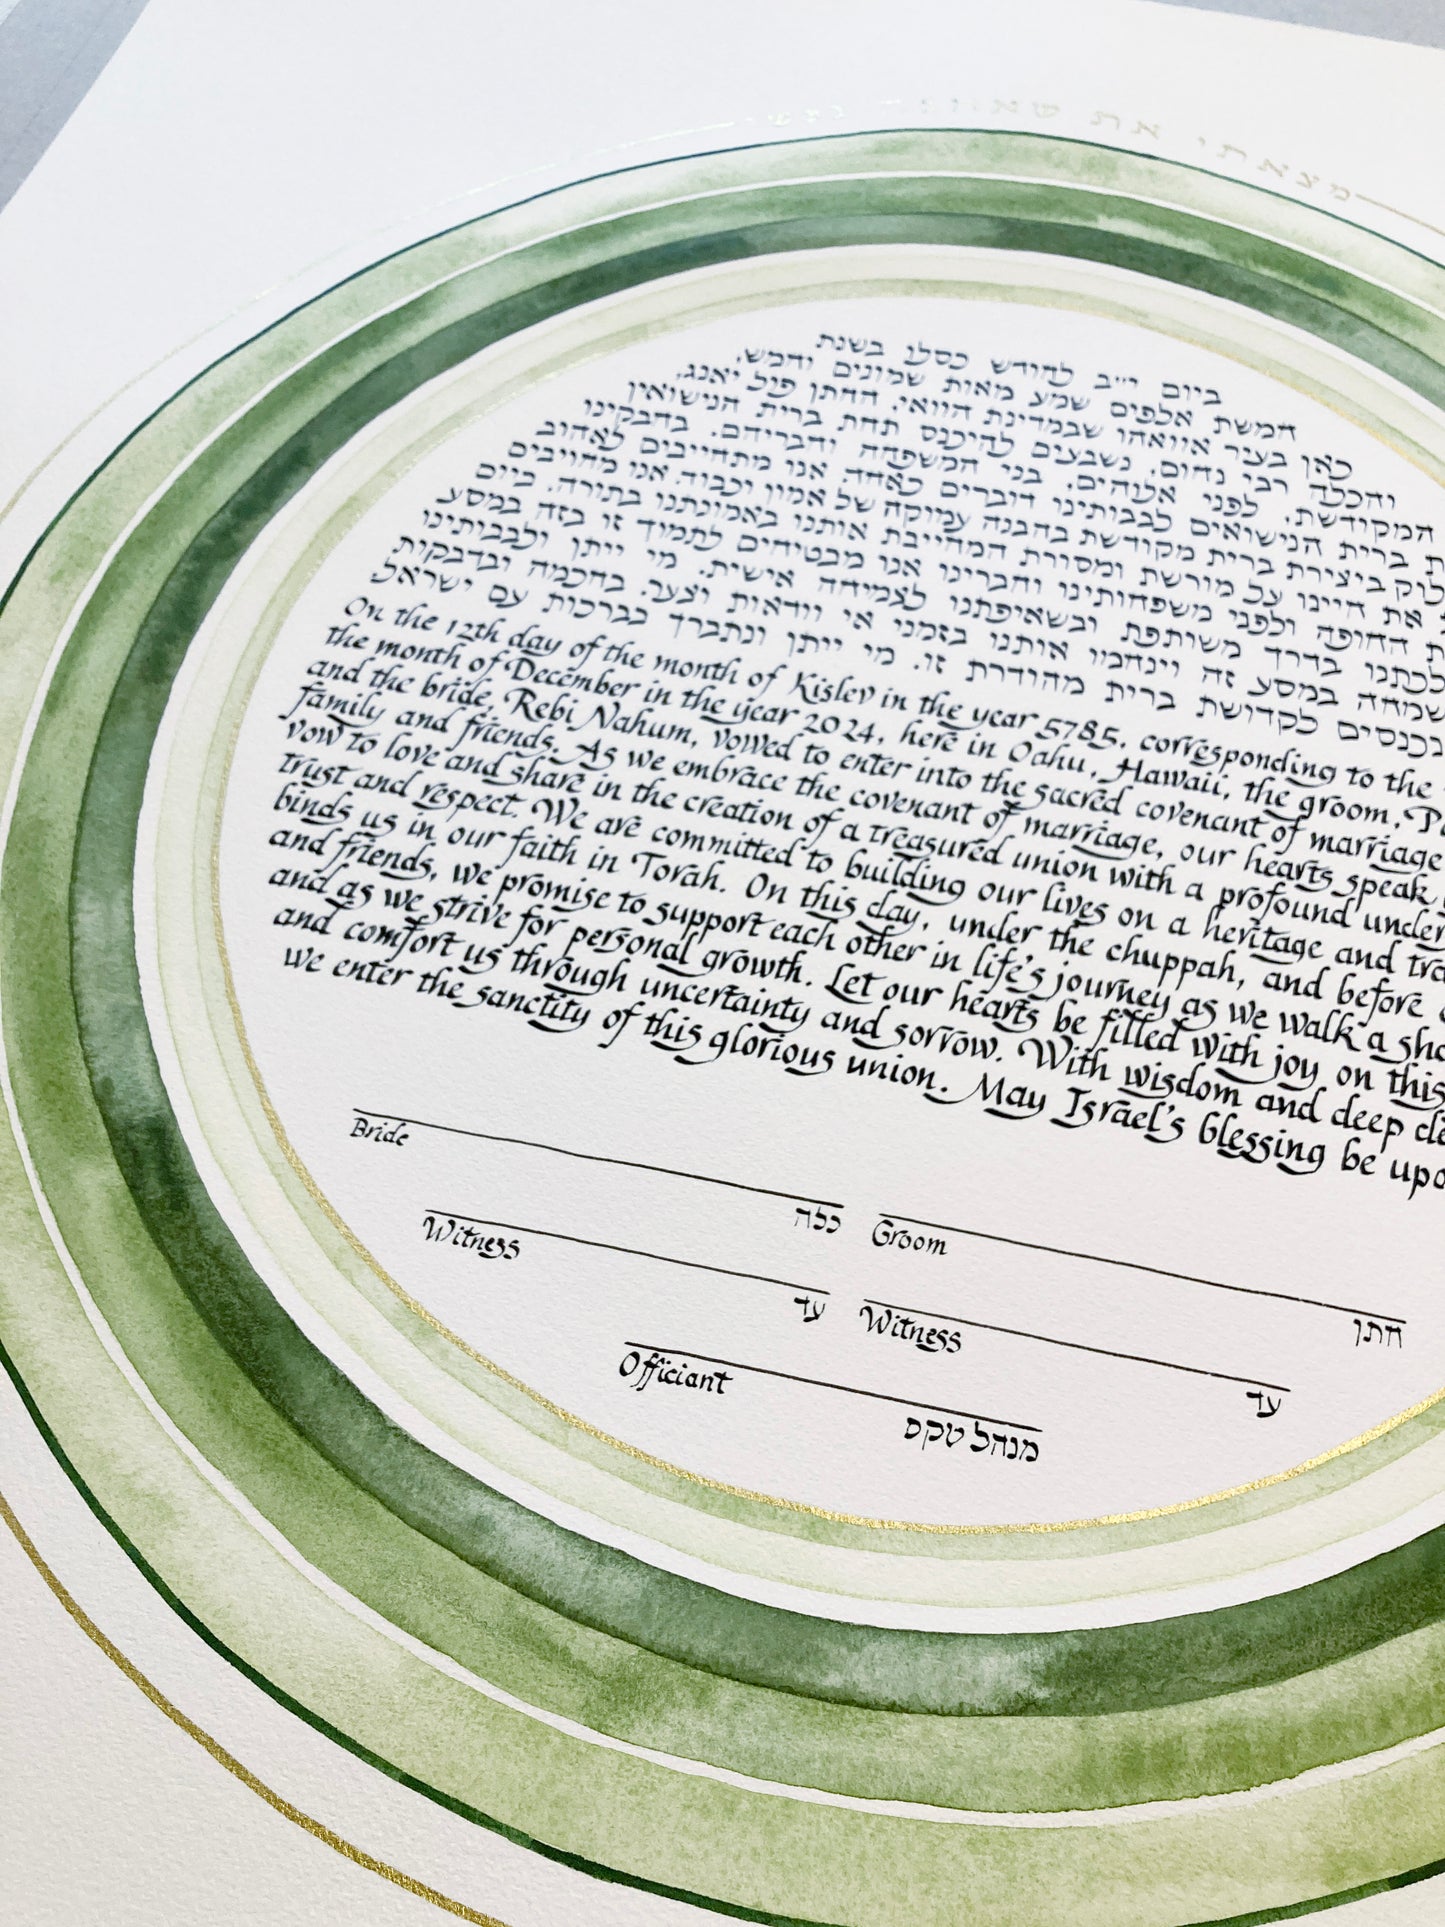 מצאתי את שאהבה נפשי
ביום י״ב לחודש כסלו בשנת
חמשת אלפים שמע מאות שמונים וחמש,
כאן בעיר אוואהו שבמדינת הוואי, החתן פול יאנג,
והכלה רבי נחום, נשבעים להיכנס תחת ברית הנישואין
המקודשת, לפני אלוהים, בני המשפחה וחבריהם. בחבקינו
ברית הנישואים לבבותינו דוברים כאחד. אנו מתחייבים לאהוב
ביצירת ברית מקודשת בהבנה עמוקה של אמון וכבוד. אנו מחויבים
את חיינו על מורשת ומסורת המחייבת אותנו באמונתנו בתורה. ביום
החופה ולפני משפחותינו וחברינו אנו מבטיחים לתמוך זו בזה במסע
לכתנו בדרך משותפת ובשאיפתנו לצמיחה אישית. מי ייתן ולבבותינו
שמחה במסע זה וינחמו אותנו בזמני אי וודאות וצער. בחכמה ובדבקות
נכנסים לקדושת ברית מהודרת זו. מי ייתן ונתברך בברכות עם ישראל
On the 12th day of the month of Kislev in the year 5785, corresponding to the
the month of December in the year 2024, here in Oahu, Hawaii, the groom, P
and the bride, Rebi Nahum, vowed to enter into the sacred covenant of marriage
family and friends. As we embrace the covenant of marriage, our hearts speak
vow to love and share in the creation of a treasured union with a profound under
trust and respect. We are committed to building our lives on a heritage and tra
binds us in our faith in Torah. On this day, under the chuppah, and before
and friends, we promise to support each other in life's journey as we walk a sha
and as we strive for personal growth. Let our hearts be filled with joy on this
and comfort us through uncertainty and sorrow. With wisdom and deep cle
we enter the sanctity of this glorious union. May Israel's blessing be upo
Bride כלה Groom חתן
Witness עד Witness עד
Officiant מנהל טקס